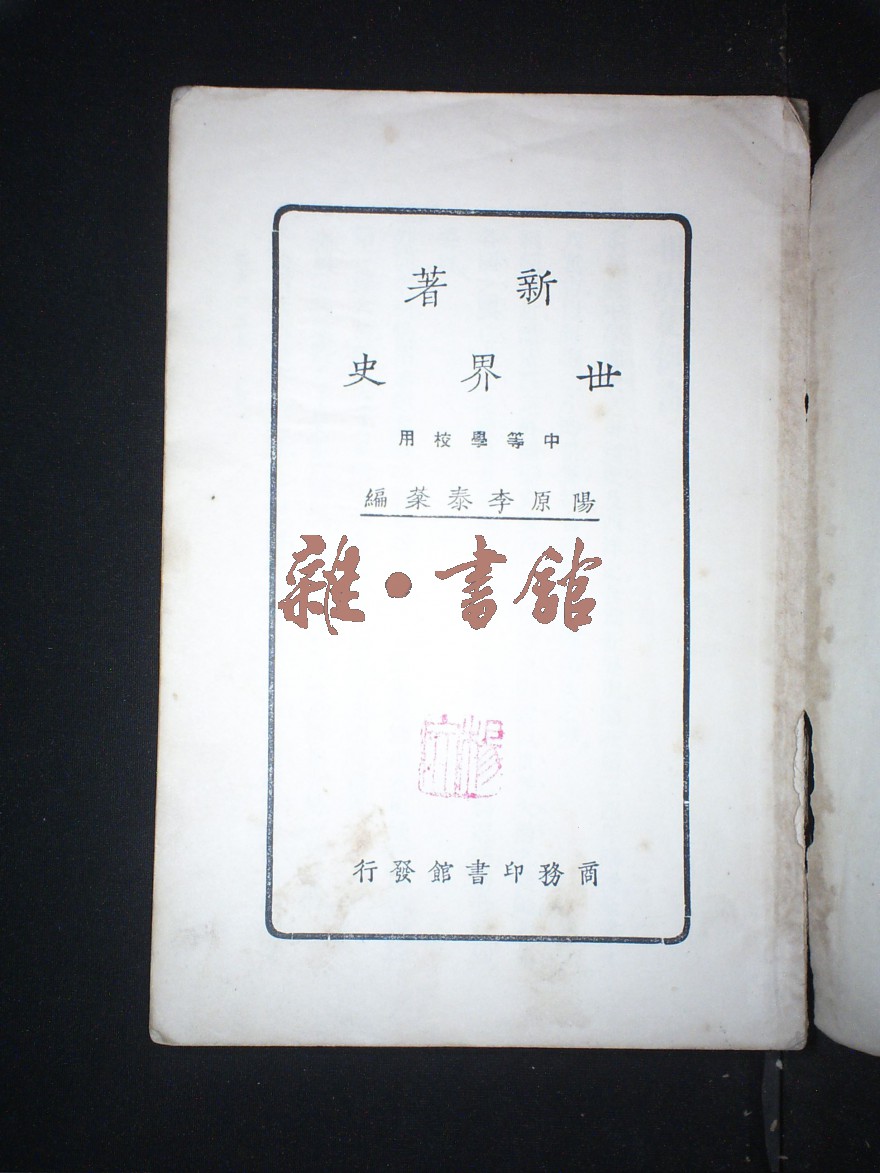 新著
世界史
中等學校用
陽原李泰棻編
雜·書館
商務印書館發行